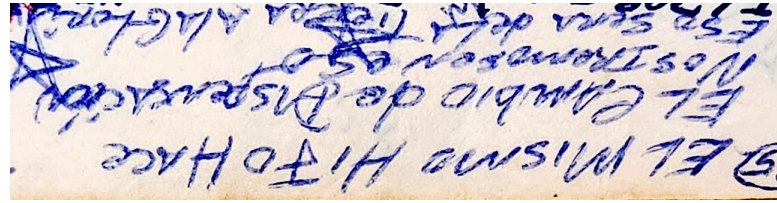 (5) EL MISMO HIJO HACE
EL CAMBIO de DISPENSACIÓN
NOSTROMOSEN ESO
ESO SERA dela TIERRA A LA GLORIA